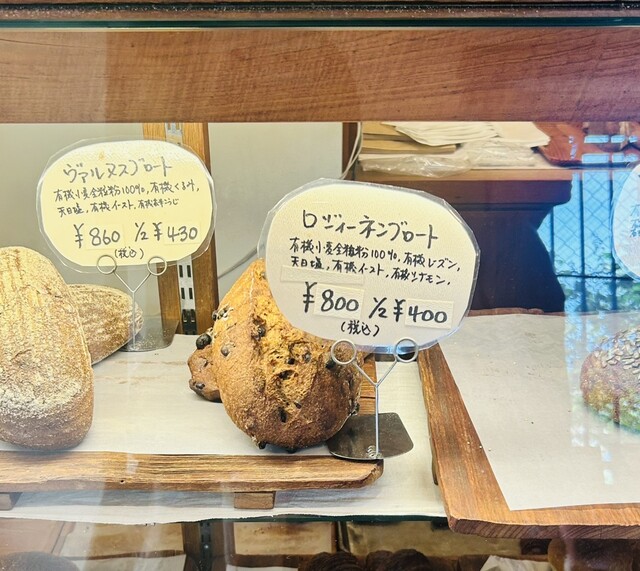 ヴァルヌスブロート
有機小麦全粒粉100%, 有機くるみ,
天日塩, 有機イースト, 有機
¥860 1/2 ¥430
(税込)
ロジィーネンブロート
有機小麦全粒粉100%, 有機レーズン,
天日塩, 有機イースト, 有機シナモン,
¥800 1/2 ¥400
(税込)